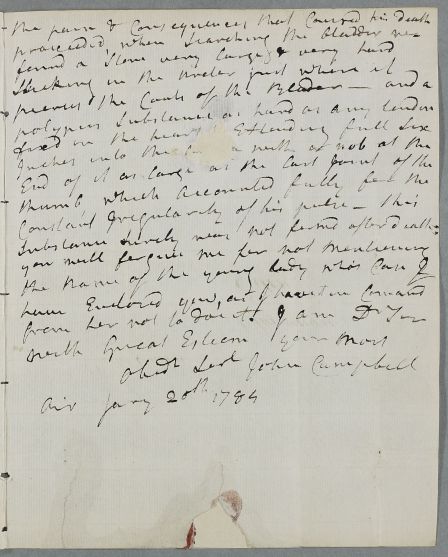 the pain & Consequences that Caused his Death
proceeded, when searching the bladder we
found a Stone very large & very hard
Sticking in the Ureter just where it
pierces the Coats of the Bladder — and a
polypus Substance as hard as any tendon
fixed in the heart & Extending full Six
Inches into the with a nob at the
End of it as large as the last Joint of the
thumb, which accounted fully for the
Constant Irregularity of his pulse — this
Substance surely was not formed after death —
you will forgive me for not mentioning
the Name of the young lady who's Case I
have Enclosed you, as I have it in Comand
from her not to do it. I am Dr Sir
with Great Esteem your most
Obedt Sert John Campbell
Air Jany 20th 1784